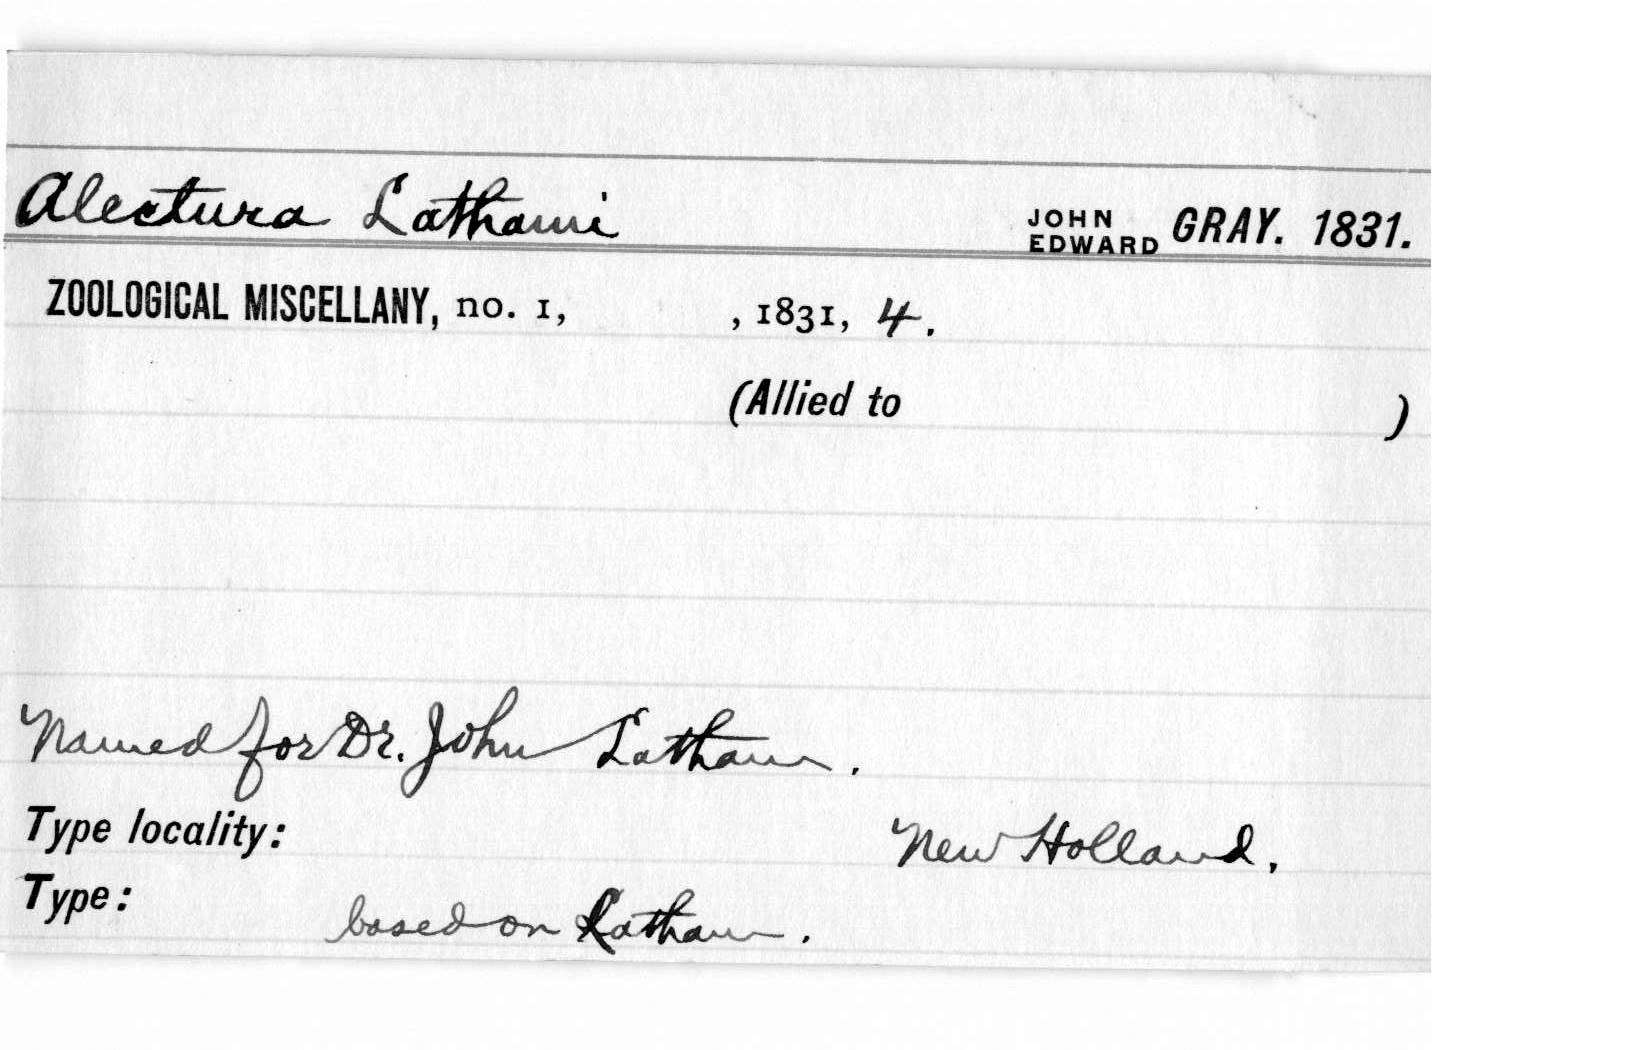 Alectura Lathami JOHN EDWARD GRAY. 1831.
ZOOLOGICAL MISCELLANY, no. 1, , 1831, 4.
(Allied to )
Named for Dr. John Latham.
Type locality: New Holland,
Type: based on Latham.